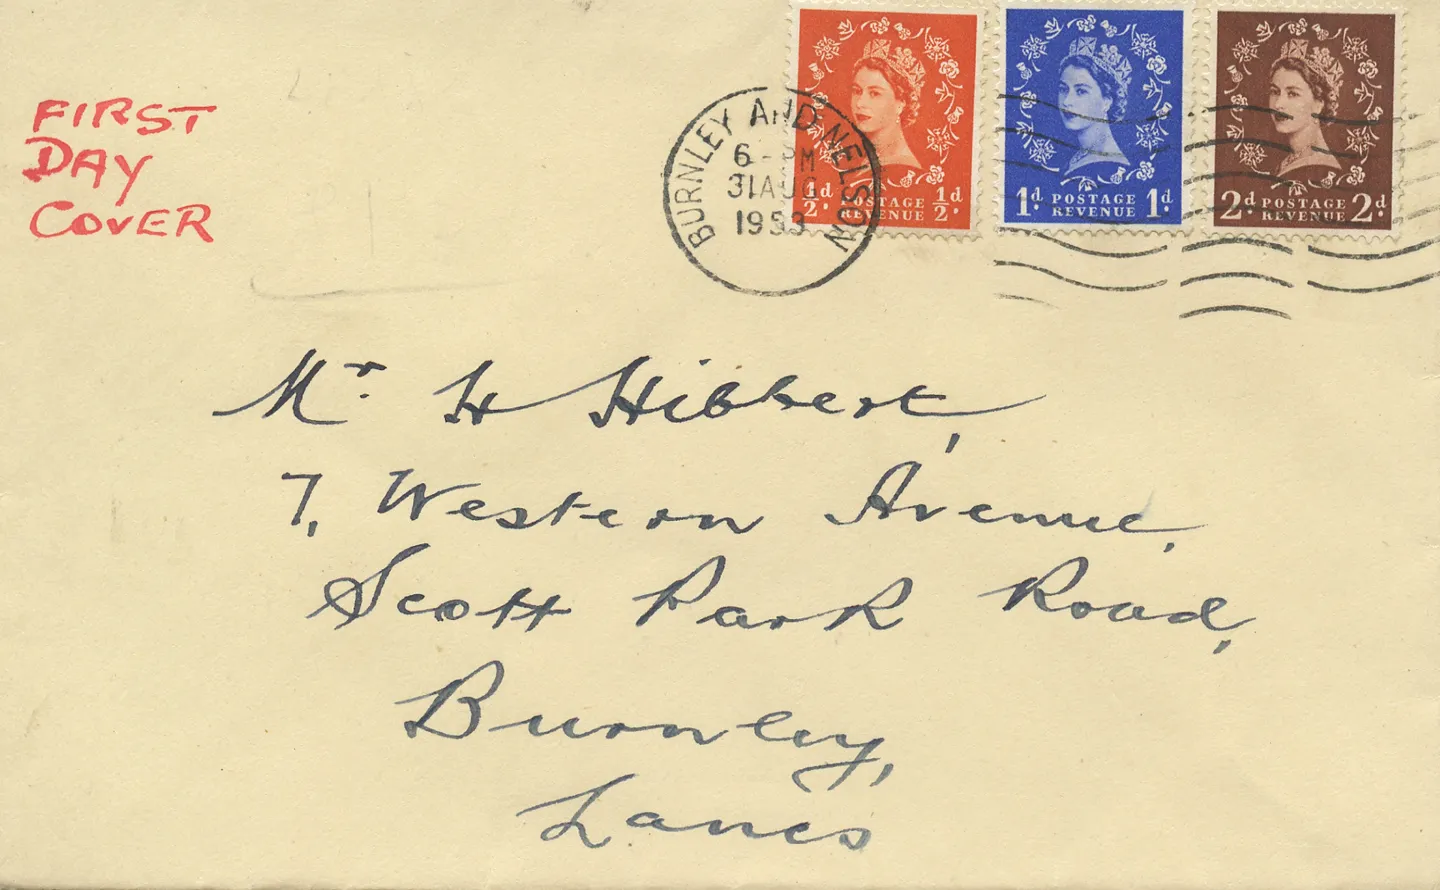 FIRST
DAY
COVER
BURNLEY AND NELSON
6 - PM
31 AUG
1953
½d. POSTAGE REVENUE ½d.
1d. POSTAGE REVENUE 1d.
2d. POSTAGE REVENUE 2d.
Mr. H Hibbert,
7, Western Avenue,
Scott Park Road,
Burnley,
Lancs